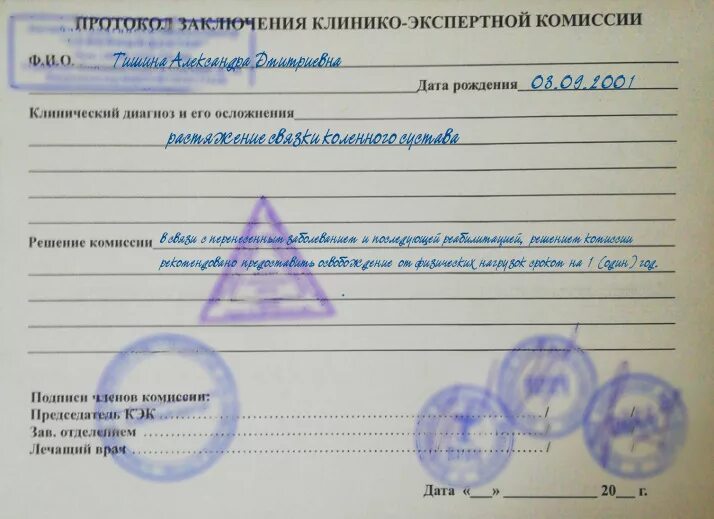 ПРОТОКОЛ ЗАКЛЮЧЕНИЯ КЛИНИКО-ЭКСПЕРТНОЙ КОМИССИИ
Ф.И.О. Тишина Александра Дмитриевна
Дата рождения 03.09.2001
Клинический диагноз и его осложнения
растяжение связки коленного сустава
Решение комиссии в связи с перенесенным заболеванием и последующей реабилитацией, решением комиссии
рекомендовано предоставить освобождение от физических нагрузок сроком на 1 (один) год.
Подписи членов комиссии:
Председатель КЭК / /
Зав. отделением / /
Лечащий врач / /
Дата «___» ____________ 20___ г.